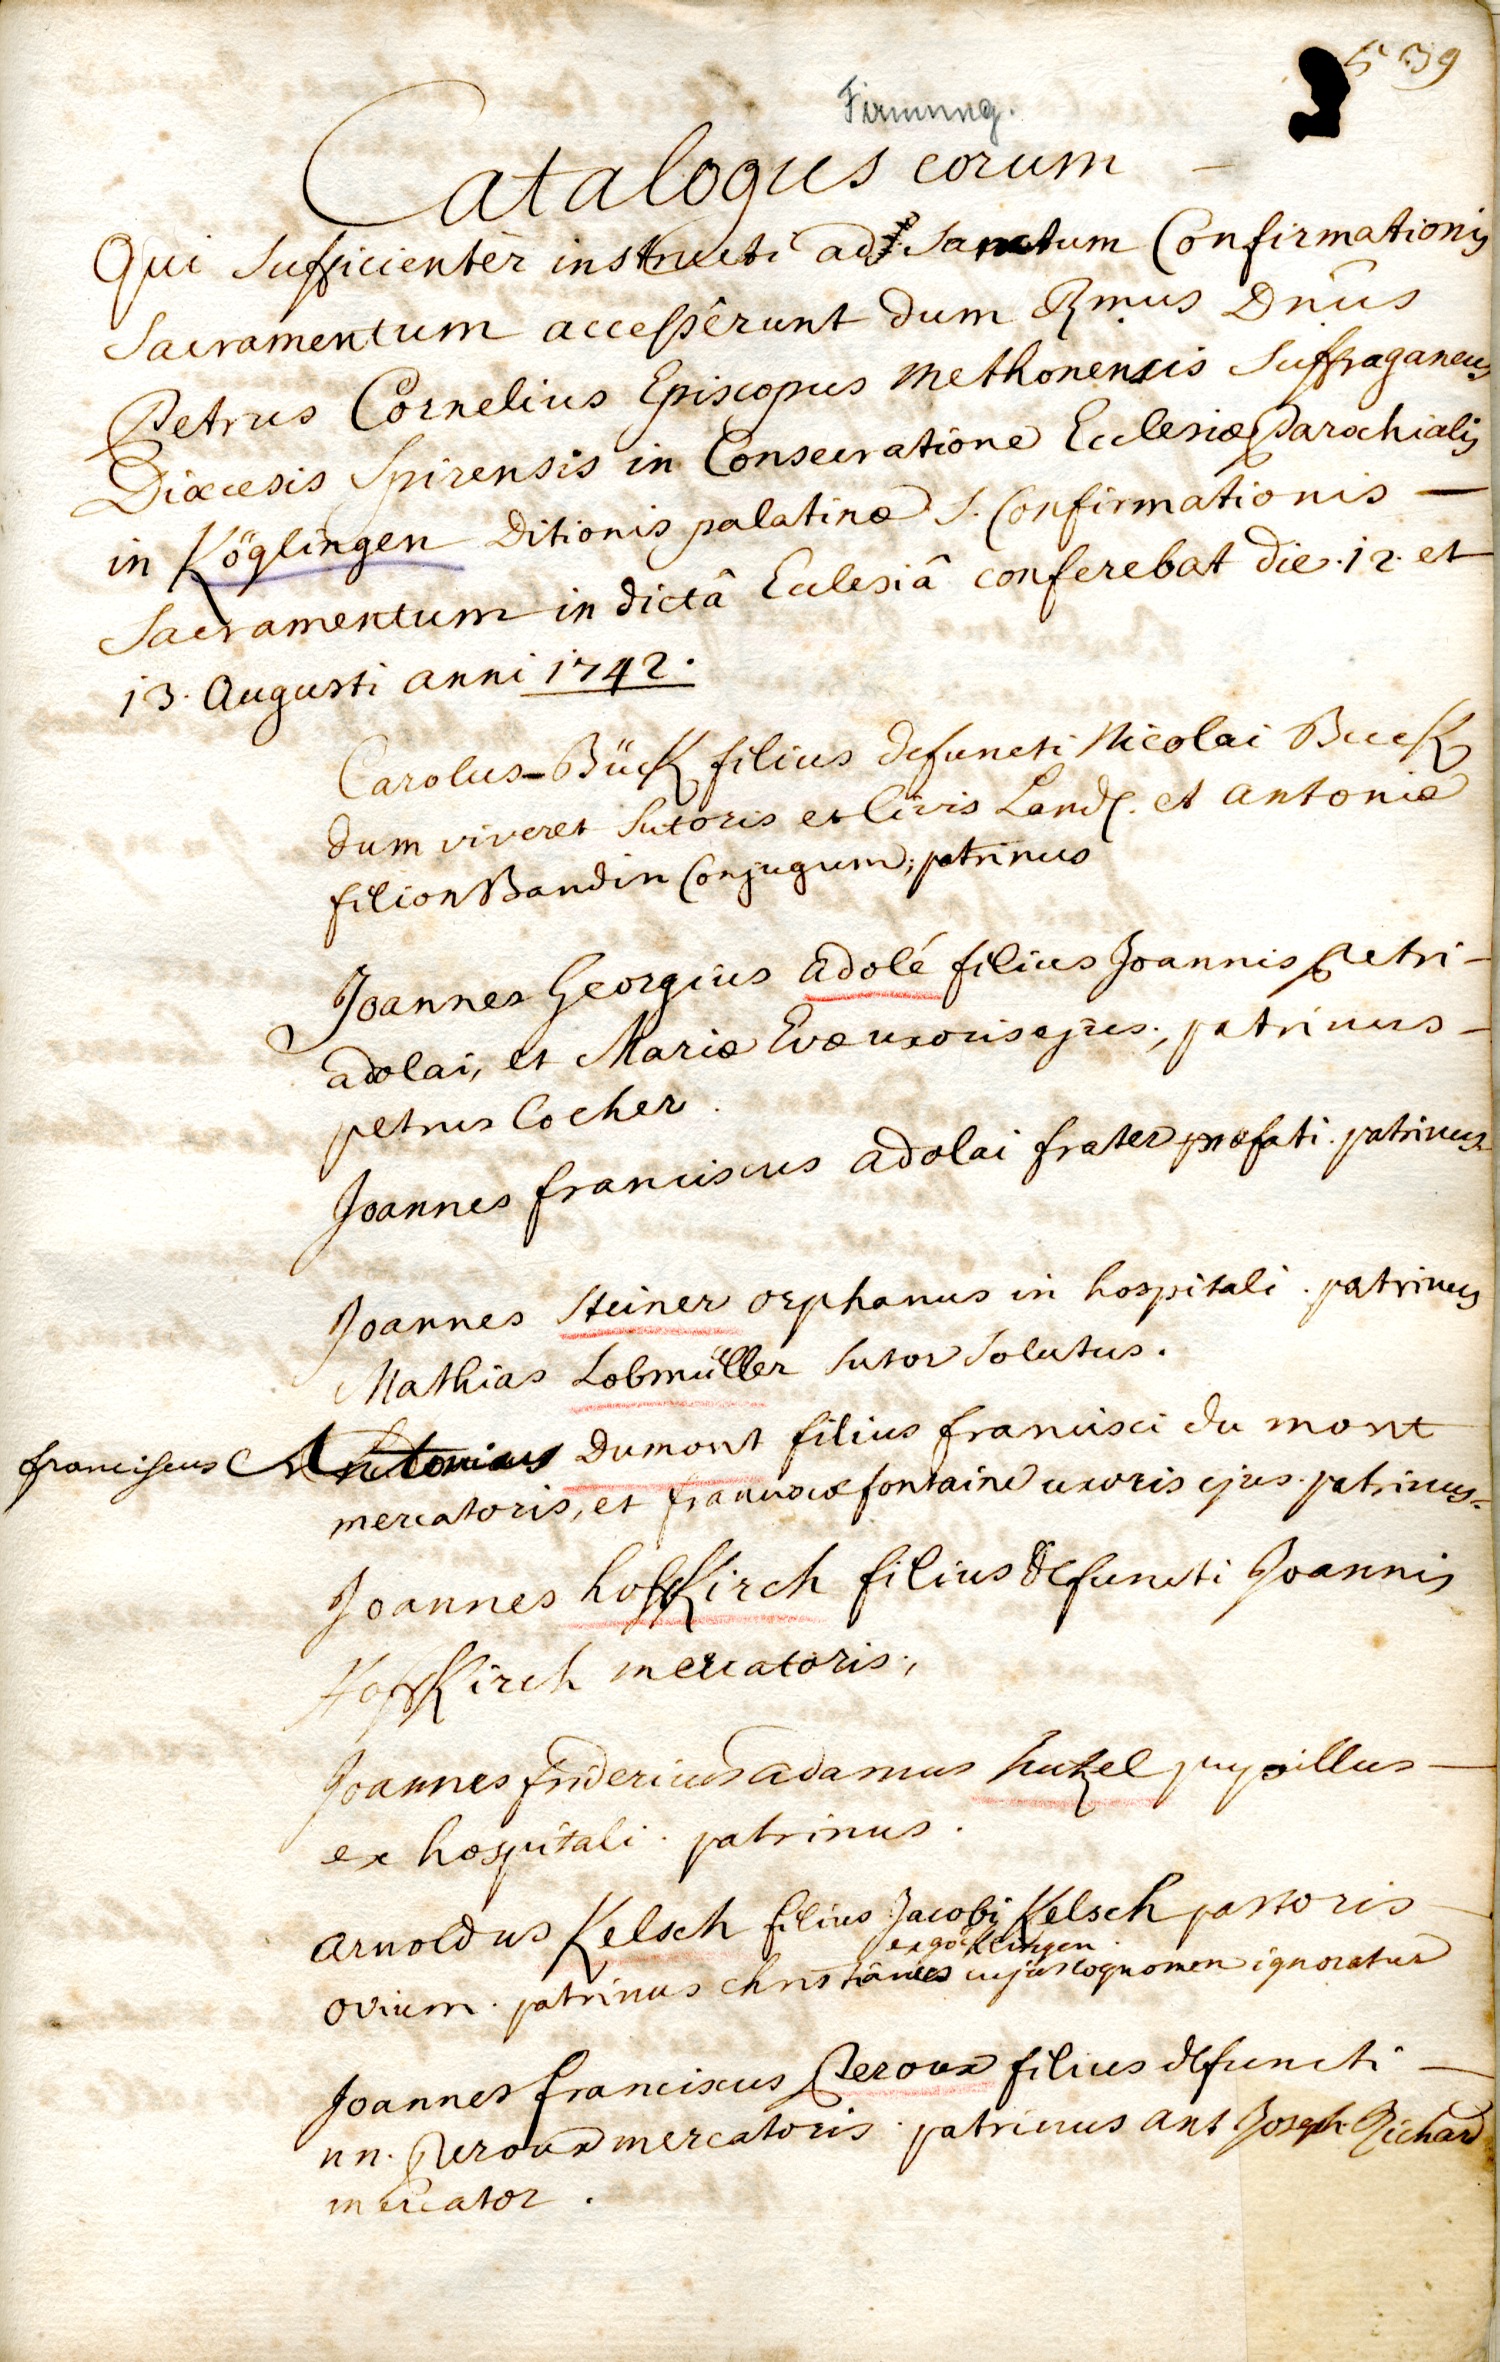 539
Firmung.
Catalogus eorum —
Qui Sufficientèr instructi ad Sanctum Confirmationis
Sacramentum accessêrunt dum Rmus Dnus
Petrus Cornelius Episcopus Methonensis Suffraganeus
Dioecesis Spirensis in Consecratione Ecclesiæ Parochialis
in Köglingen Ditionis palatinæ S. Confirmationis —
Sacramentum in dictâ Ecclesiâ conferebat die. 12. et
13. Augusti anni 1742.
Carolus Bück filius defuncti Nicolai Buck
dum viveret Sutoris et Civis Land. et antoniæ
filion Bandin Conjugum; patrinus
Joannes Georgius adolé filius Joannis Petri-
adolai, et Mariæ Evæ uxoris ejus; patrinus-
petrus Cocher.
Joannes franciscus adolai frater præfati. patrinus
Joannes Steiner orphanus in hospitali. patrinus
Mathias Lobmüller Sutor Solutus.
franciscus Antonius Dumont filius francisci du mont
mercatoris, et franciscæ fontaine uxoris ejus. patrinus.
Joannes hoffKirch filius defuncti Joannis
HoffKirch mercatoris;
Joannes fridericus adamus hutzel pupillus —
ex hospitali. patrinus.
Arnoldus Kelsch filius Jacobi Kelsch pastoris
ex göcklingen.
ovium. patrinus christianus cujus cognomen ignoratur
Joannes franciscus Peroux filius defuncti —
nn. Peroux mercatoris. patrinus ant Joseph Richard
mercator.